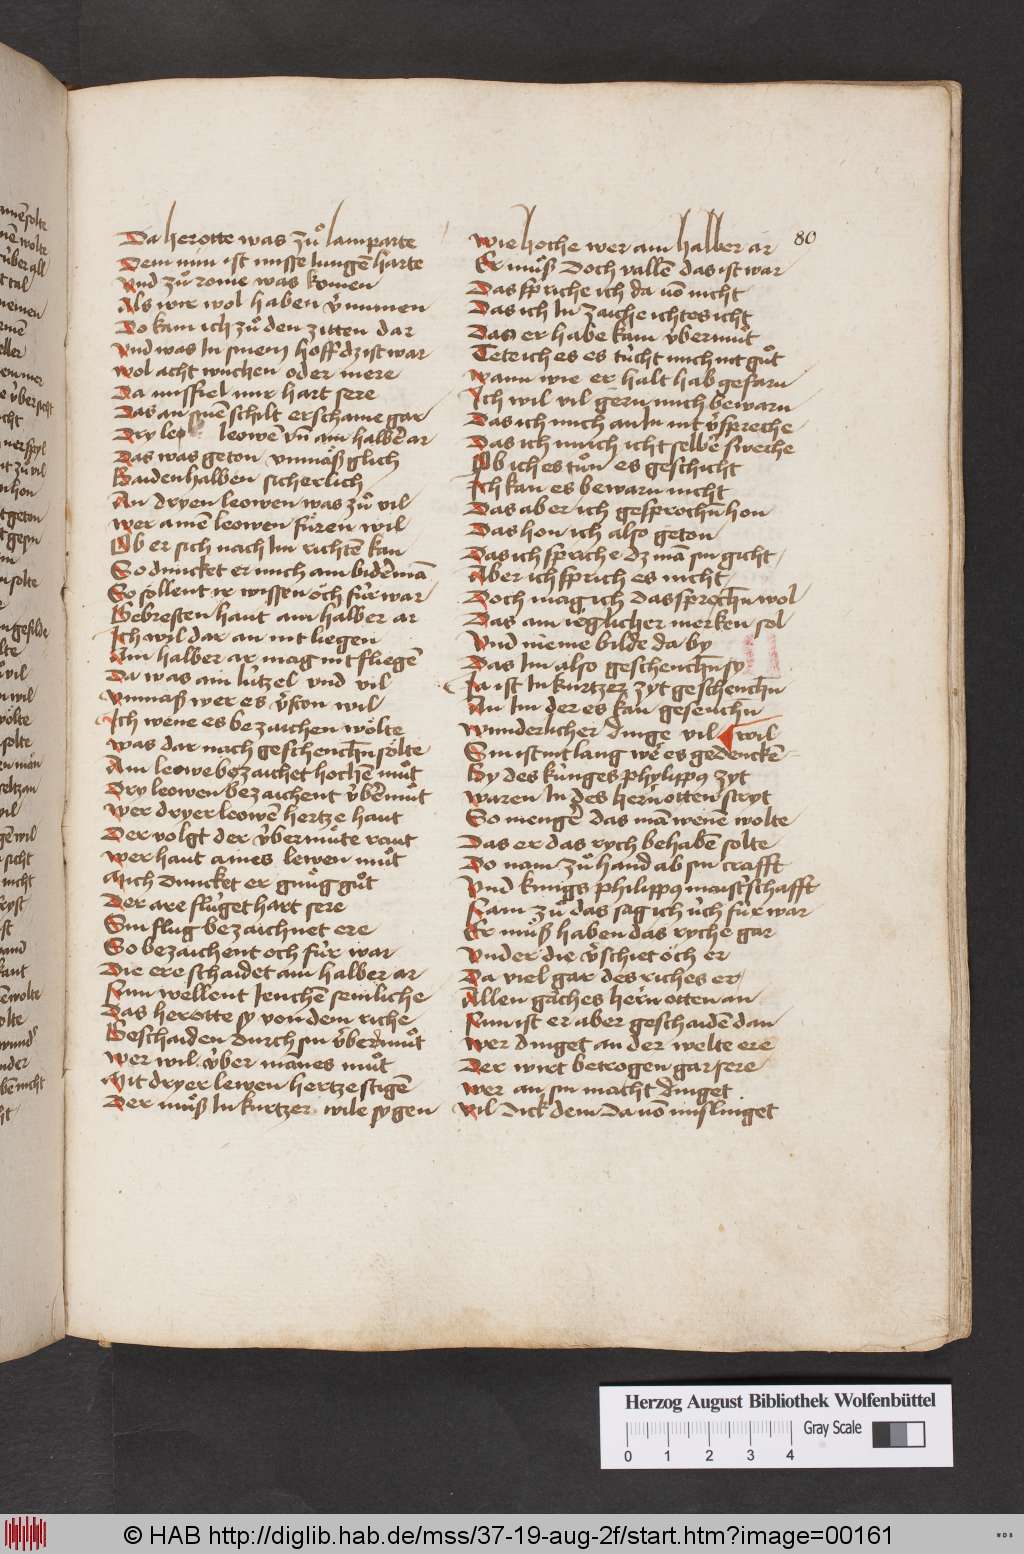 80
Da herotte was zů lamparte
Dem min ist misse lungē harte
Vnd zů rome was komen
Als wir wol haben v̉nnmen
Do kam ich zů den zitten dar
Vnd was In sinem hoff dz ist war
wol acht wuchen oder mere
Da missfiel mir hart sere
Das an sine schilt erschaine gar
Dry leowē vñ am halbē ar
Das was geton vnmäß glich
Baidenhalben sicherlich
An dryen leowen was zů vil
wer amē leowen füren wil
Ob er sich nach Im richtē kan
So duncket er mich am bidērmā
So sollent ir wissen och für war
Gebresten haut am halber ar
Ich wil dar an nit liegen
Am halber ar mag nit fliegē
Da was am lützel vnd vil
vnmaß wer es v̉ston wil
Ich wene es bezaichen wölte
was dar nach geschenchn̄ sölte
Am leowe bezaichet hochē můt
Dry leowen bezaichent v̉bērmůt
wer dryer leowē hertze haut
Der volgt der v̉bermůte raut
wer haut aines lewen můt
Mich duncket er gnůg gůt
Der are flüget hart sere
Sin flug bezaichnet ere
So bezaichent och für war
Die ere schaidet am halber ar
Nun wellent Ienchē semliche
Das herotte sy von dem riche
Beschaiden durch sin v̉bermůt
wer wil v̉ber mānes můt
Mit dryer lewen hertze stigē
Der můß In kurtzer wile sygen
wie hoche wer am halber ar
Er můß doch vallē das ist war
Das spriche ich da vō nicht
Das ich In zaiche ichtes icht
Das er habe kam v̉bermůt
Tete ich es es tücht mich nit gůt
wann wie er halt hab gefarn
Ich wil vil gern mich bewarn
Das ich mich an Im nit v̉spreche
Das ich mich icht selbē sweche
Ob ich es tůn es geschicht
Ich kan es bewarn nicht
Das aber ich gesprochn̄ hon
Das hon ich also geton
Das ich spriche dz mā sin gicht
Aber ich sprich es nicht
Doch mag ich das sprechn̄ wol
Das am ieglicher merken sol
Vnd nieme bilde da by
Das Im also geschenchn̄ sy
Ia ist In kurtzer zyt geschenchn̄
An Im der es kan gesenchn
wunderlicher dinge vil wil
Sin ist nit lang wē es gedenckē
By des künges phylippꝯ zyt
waren In des hern otten stryt
So mengēr das mā wenē wolte
Das er das rych behabē solte
Do nam zů hand ab sin crafft
Vnd kunigs philippꝯ maist̉schafft
Kam zů das sag ich v̉ch für war
Er můß haben das ryche gar
vnder die v̉schiet och er
Da viel gar des riches er
Allen gāches hern otten an
Nun ist er aber geschaidē dan
wer dinget an der welte ere
Der wirt betrogen gar sere
wer an sin macht dinget
Vil dick dem da vō mislinget
Herzog August Bibliothek Wolfenbüttel
Gray Scale
0 1 2 3 4
© HAB http://diglib.hab.de/mss/37-19-aug-2f/start.htm?image=00161